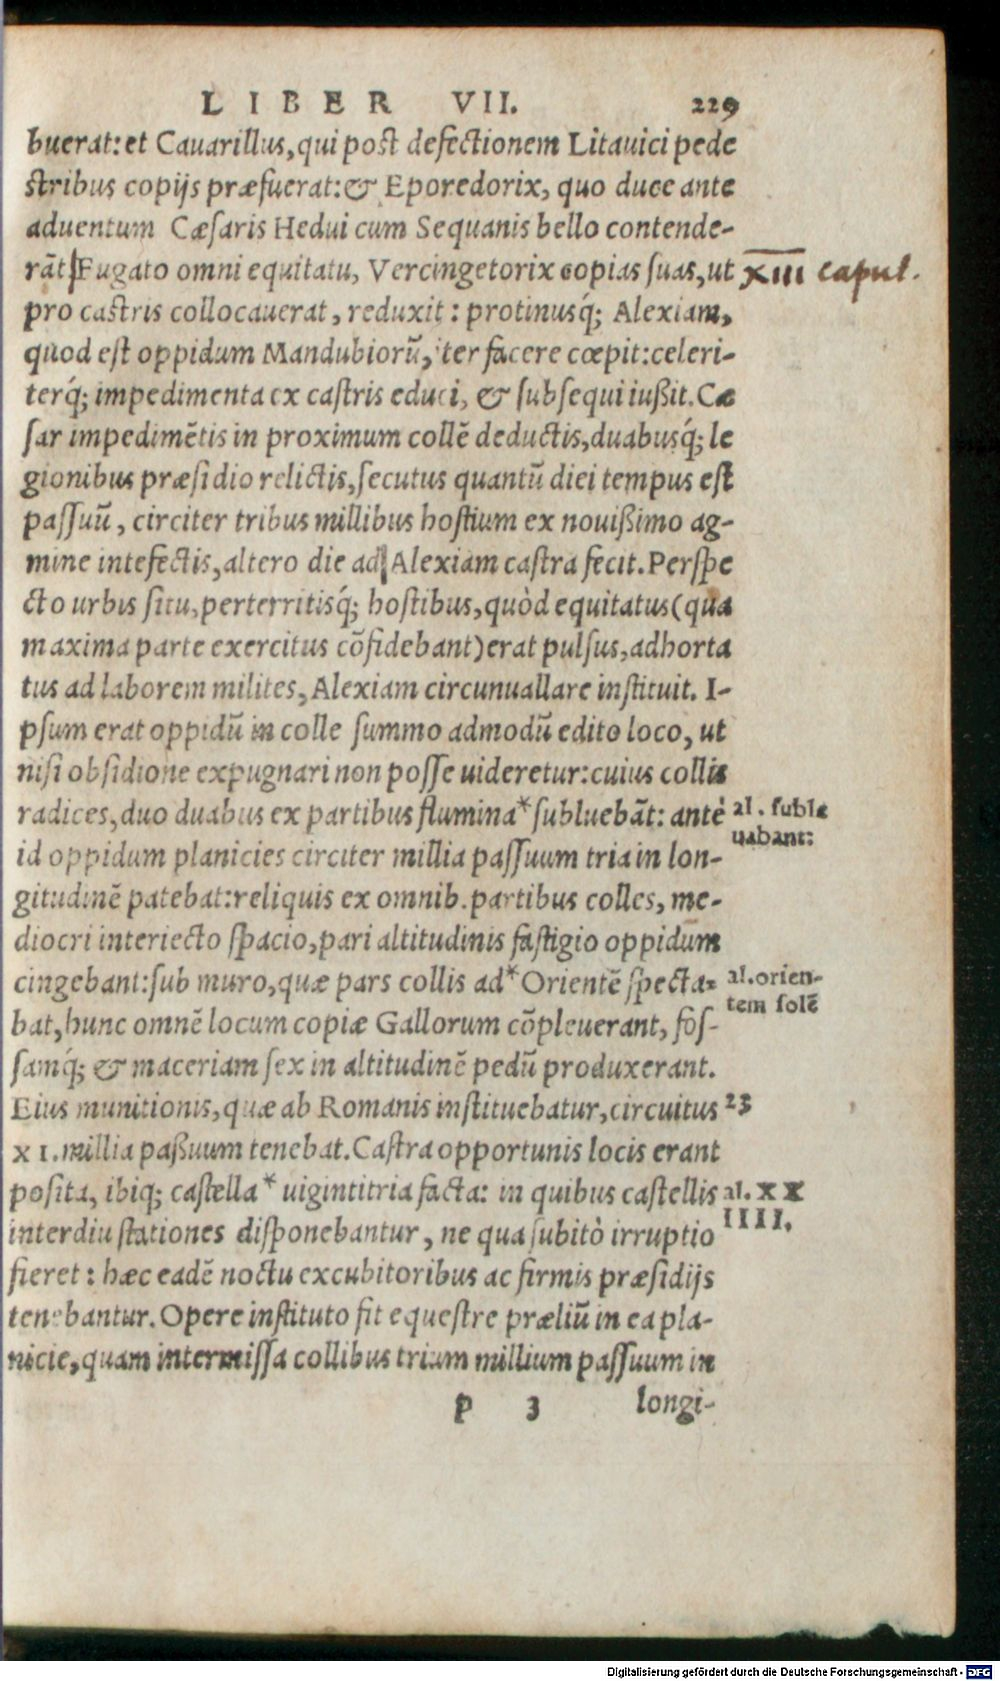 LIBER VII. 229
buerat: et Cauarillus, qui post defectionem Litauici pede
stribus copijs præfuerat: & Eporedorix, quo duce ante
aduentum Cæsaris Hedui cum Sequanis bello contende-
rāt. Fugato omni equitatu, Vercingetorix copias suas, ut
XIII caput.
pro castris collocauerat, reduxit: protinusq́; Alexiam,
quod est oppidum Mandubiorū, iter facere cœpit: celeri-
terq́; impedimenta ex castris educi, & subsequi iußit. Cæ
sar impedimētis in proximum collē deductis, duabusq́; le
gionibus præsidio relictis, secutus quantū diei tempus est
passuū, circiter tribus millibus hostium ex nouißimo ag-
mine intefectis, altero die ad Alexiam castra fecit. Perspe
cto urbis situ, perterritisq́; hostibus, quòd equitatus (qua
maxima parte exercitus cōfidebant) erat pulsus, adhorta
tus ad laborem milites, Alexiam circunuallare instituit. I-
psum erat oppidū in colle summo admodū edito loco, ut
nisi obsidione expugnari non posse uideretur: cuius collis
radices, duo duabus ex partibus flumina* subluebāt: ante
al. subla
uabant:
id oppidum planicies circiter millia passuum tria in lon-
gitudinē patebat: reliquis ex omnib. partibus colles, me-
diocri interiecto spacio, pari altitudinis fastigio oppidum
cingebant: sub muro, quæ pars collis ad* Orientē specta-
al. orien-
tem solē
bat, hunc omnē locum copiæ Gallorum cōpleuerant, fos-
samq́; & maceriam sex in altitudinē pedū produxerant.
Eius munitionis, quæ ab Romanis instituebatur, circuitus
23
XI. millia paßuum tenebat. Castra opportunis locis erant
posita, ibiq; castella* uigintitria facta: in quibus castellis
al. XX
IIII.
interdiu stationes disponebantur, ne qua subitò irruptio
fieret: hæc eadē noctu excubitoribus ac firmis præsidijs
tenebantur. Opere instituto fit equestre præliū in ea pla-
nicie, quam intermissa collibus trium millium passuum in
p 3 longi-
Digitalisierung gefördert durch die Deutsche Forschungsgemeinschaft - DFG